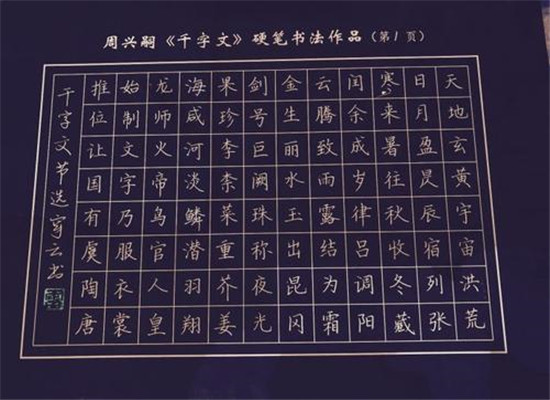 周兴嗣《千字文》硬笔书法作品(第1页)
天地玄黄宇宙洪荒
日月盈昃辰宿列张
寒来暑往秋收冬藏
闰余成岁律吕调阳
云腾致雨露结为霜
金生丽水玉出昆冈
剑号巨阙珠称夜光
果珍李柰菜重芥姜
海咸河淡鳞潜羽翔
龙师火帝鸟官人皇
始制文字乃服衣裳
推位让国有虞陶唐
千字文节选云书